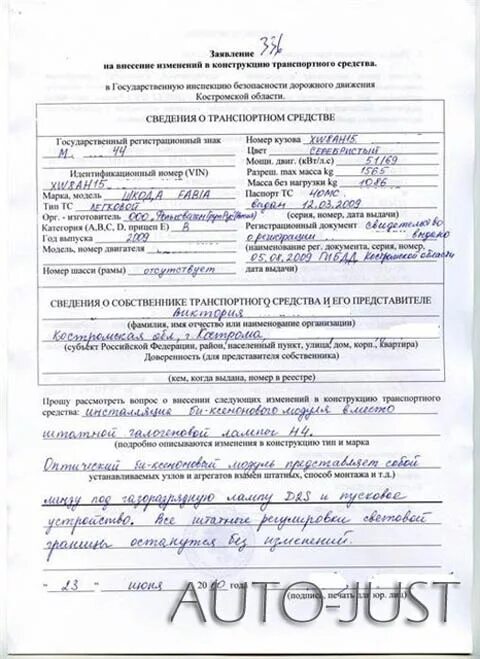 Заявление 336
на внесение изменений в конструкцию транспортного средства.
в Государственную инспекцию безопасности дорожного движения
Костромской области.
СВЕДЕНИЯ О ТРАНСПОРТНОМ СРЕДСТВЕ
Государственный регистрационный знак
М 44
Идентификационный номер (VIN)
XW8AH15
Марка, модель ШКОДА FABIA
Тип ТС легковой
Орг. - изготовитель ООО "Фольксваген
Категория (A,B,C, D, прицеп E) B
Год выпуска 2009
Модель, номер двигателя
Номер шасси (рамы) отсутствует
Номер кузова XW8AH15
Цвет СЕРЕБРИСТЫЙ
Мощн. двиг. (кВт/л.с) 51/69
Разреш. max масса kg 1565
Масса без нагрузки kg 1086
Паспорт ТС 40МС
выдан 12.03.2009
(серия, номер, дата выдачи)
Регистрационный документ свидетельство
о регистрации выдано
(наименование рег. документа, серия, номер,
05.08.2009 ГИБДД Костромской области
дата выдачи)
СВЕДЕНИЯ О СОБСТВЕННИКЕ ТРАНСПОРТНОГО СРЕДСТВА И ЕГО ПРЕДСТАВИТЕЛЕ
Виктория
(фамилия, имя отчество или наименование организации)
Костромская обл., г. Кострома,
(субъект Российской Федерации, район, населенный пункт, улица, дом, корп., квартира)
Доверенность (для представителя собственника)
(кем, когда выдана, номер в реестре)
Прошу рассмотреть вопрос о внесении следующих изменений в конструкцию транспортного
средства: инсталляция би-ксенонового модуля вместо
штатной галогеновой лампы H4.
(подробно описываются изменения в конструкцию тип и марка
Оптический би-ксеноновый модуль представляет собой
устанавливаемых узлов и агрегатов взамен штатных, способ монтажа и т.д.)
линзу под газоразрядную лампу D2S и пусковое
устройство. Все штатные регулировки световой
границы останутся без изменений.
" 23 " июня 20 10 года
(подпись, печать для юр. лиц)
AUTO-JUST